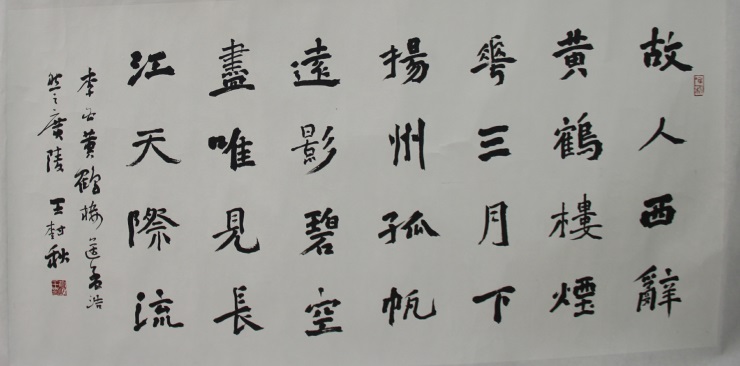 故人西辭
黄鶴樓煙
花三月下
揚州孤帆
遠影碧空
盡唯見長
江天際流
李白黄鶴樓送孟浩
然之廣陵 王樹秋